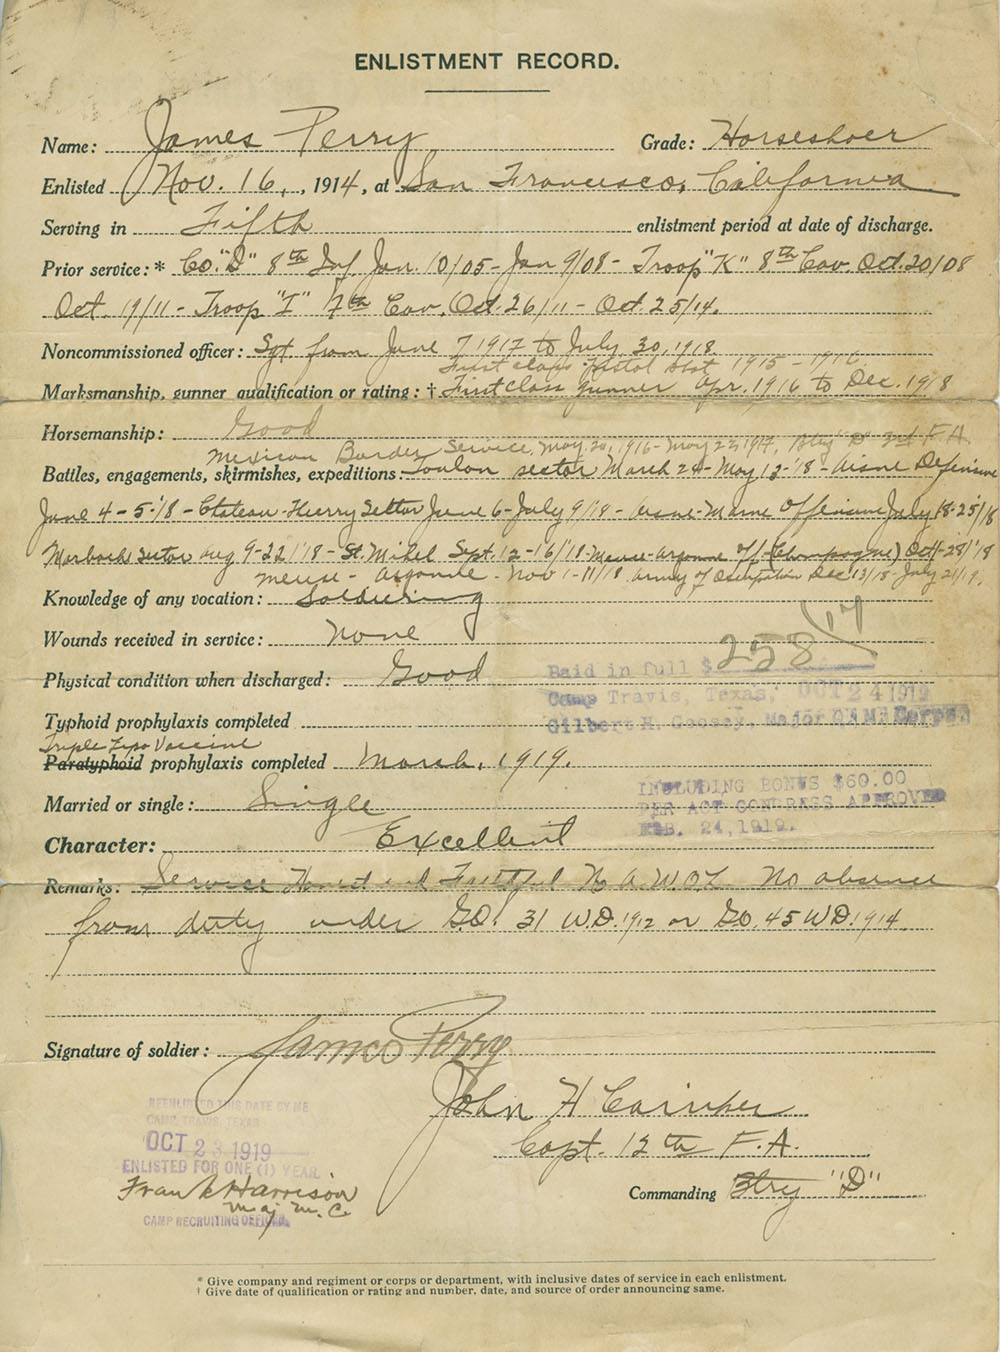 ENLISTMENT RECORD.
Name: James Perry Grade: Horseshoer
Enlisted Nov. 16, , 1914, at San Francisco, California
Serving in Fifth enlistment period at date of discharge.
Prior service:* Co. "D" 8th Inf Jan. 10/05 - Jan 9/08 - Troop "K" 8th Cav. Oct. 20/08
Oct. 19/11 - Troop "I" 7th Cav. Oct. 26/11 - Oct. 25/14.
Noncommissioned officer: Sgt from June 7 1917 to July 30, 1918
First class Pistol Shot 1915 - 1916
Marksmanship, gunner qualification or rating: † First class Gunner Apr. 1916 to Dec. 1918
Horsemanship: Good
Mexican Border Service, May 20, 1916 - May 22, 1917, Btry "D" 3rd F.A.
Battles, engagements, skirmishes, expeditions: Toulon sector March 24 - May 13 - '18 - Aisne Defensive
June 4 - 5 - '18 - Chateau - Thierry Sector June 6 - July 9/18 - Aisne - Marne Offensive July 18 - 25/18
Marbache Sector Aug 9 - 22/'18 - St. Mihel Sept. 12 - 16/18 - Meuse - Argonne Off (Champagne) Oct 1 - 28/'18
Meuse - Argonne - Nov 1 - 11/18 Army of Occupation Dec 13/18 - July 21/19.
Knowledge of any vocation: Soldiering
Wounds received in service: None
Physical condition when discharged: Good
Paid in full $ 258 17
Camp Travis, Texas, OCT 24 1919
Gilbert H. Major Q M Corps
Typhoid prophylaxis completed
Triple Typo Vaccine
Paratyphoid prophylaxis completed March, 1919.
INCLUDING BONUS $60.00
PER ACT CONGRESS APPROVED
FEB. 24, 1919.
Married or single: Single
Character: Excellent
Remarks: Service Honest and Faithful No A.W.O.L No absence
from duty under G.O. 31 W.D. 1912 or G.O. 45 W.D. 1914.
Signature of soldier: James Perry
John H
Capt. 12th F.A.
Commanding Btry "D"
REENLISTED THIS DATE BY ME
CAMP TRAVIS, TEXAS
OCT 23 1919
ENLISTED FOR ONE (1) YEAR
Frank Harrison
Maj M.C.
CAMP RECRUITING OFFICER.
* Give company and regiment or corps or department, with inclusive dates of service in each enlistment.
† Give date of qualification or rating and number, date, and source of order announcing same.